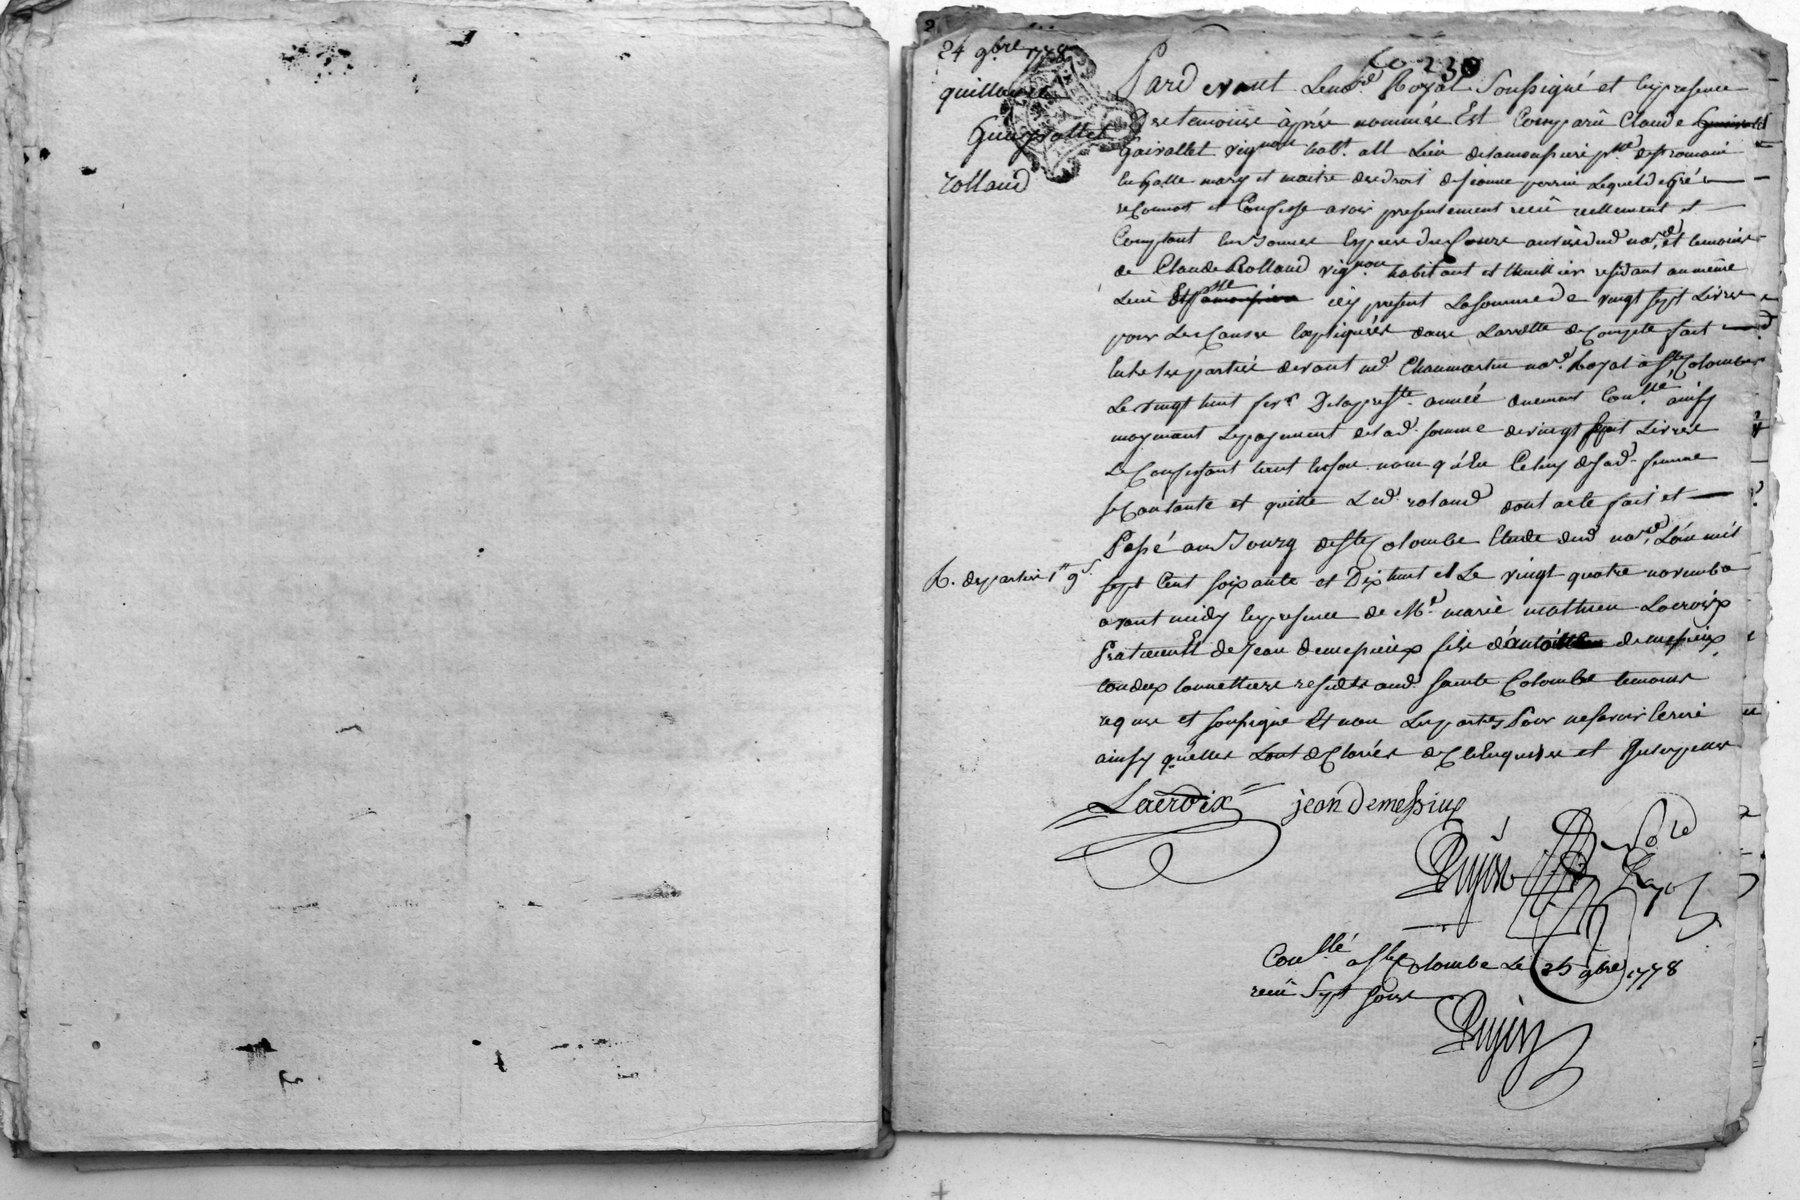 24 9bre 1778
quittance
Guairallet
rolland
Co 230
Pard evant Le no.re Royal Soussigné et en presence
Des temoins après nommés Est Comparû Claude
Gairallet vign.on hab.t au Lieu
en Galle mary et maitre des droits de jeanne perrin Lequel de gré
reConnoit et Confesse avoir presentement reçû reellement et
Comptant en sonnes Especes du Cours au vû dud no.re et temoins
de Claude Rolland vign.on habitant et thuillier residant au même
Lieu icy present La somme de vingt sept Livres
pour Les Causes Expliquées dans Larrette de Compte fait
Entre Les parties devant me. Chaumartin no.re Royal à Ste Colombe
Le vingt huit fev.r De la pres.te année duement Con.llé ainsy
moyennant Le payement de lad. somme de vingt sept Livres
Le Confessant tient en son nom q'à Celuy de sad. femme
se Contante et quitte Led. roland dont acte fait et
Passé au Bourg de Ste Colombe Etude dud no.re, L'an mil
R. des parties 1.er 9 s.
sept Cent soixante et Dix huit et Le vingt quatre novembre
avant midy En presence de M.e marie mathieu Lacroix
Praticien Et de Jean demessieux fils d'antoine demessieux
tous deux tonnelliers residts aud. sainte Colombe temoins
requis et soussigné Et non Les parties Pour ne savoir Ecrire
ainsy qu'elles L'ont déClarées de Ce Enquises et Interpellées
Lacroix jean Demessiux
Pujin no.re Royal
Con.llé à Ste Colombe Le 25 9bre 1778
reçû Sept sous
Pujin